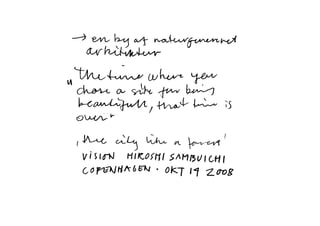 → en by af naturgenereret
arkitektur
"The time where you
chose a site for being
beautifull, that time is
over"
, the city like a forest'
VISION HIROSHI SAMBUICHI
COPENHAGEN · OKT 19 2008